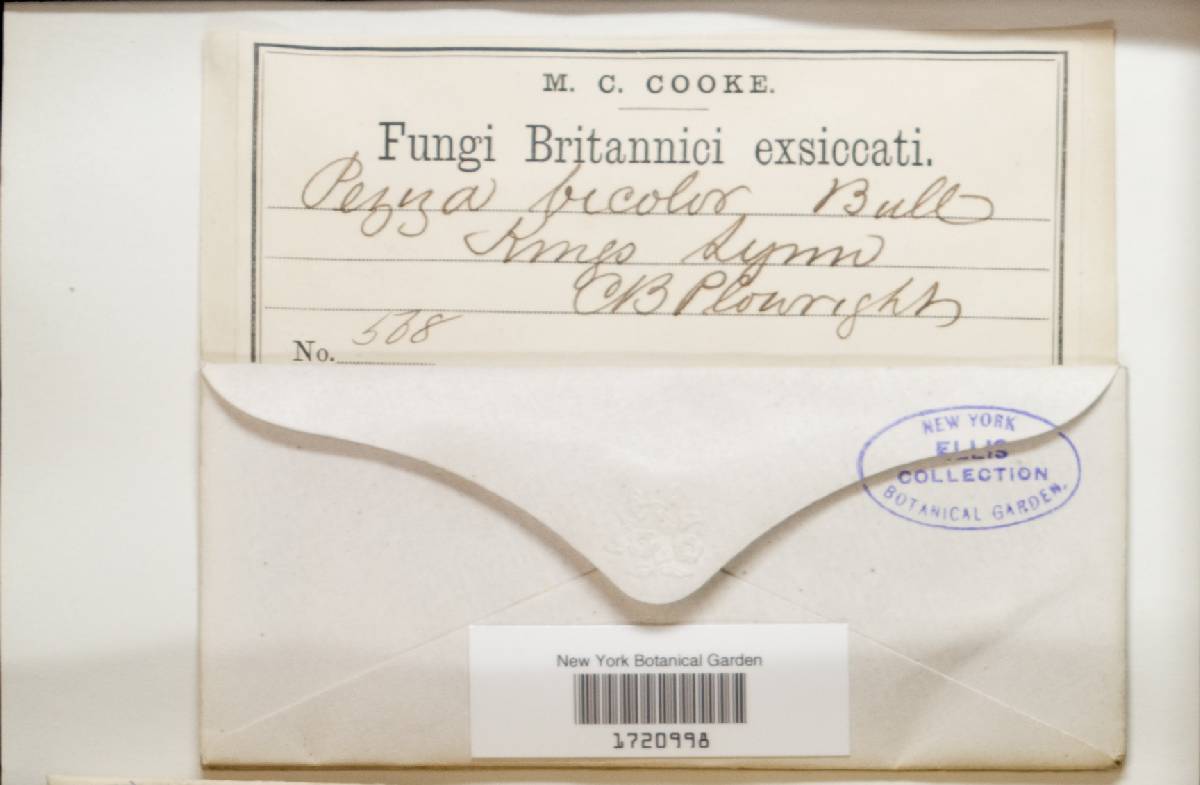 M. C. COOKE.
Fungi Britannici exsiccati.
Peziza bicolor Bull
Kings Lynn
CB Plowright
No. 568
NEW YORK
ELLIS
COLLECTION
BOTANICAL GARDEN.
New York Botanical Garden
1720998